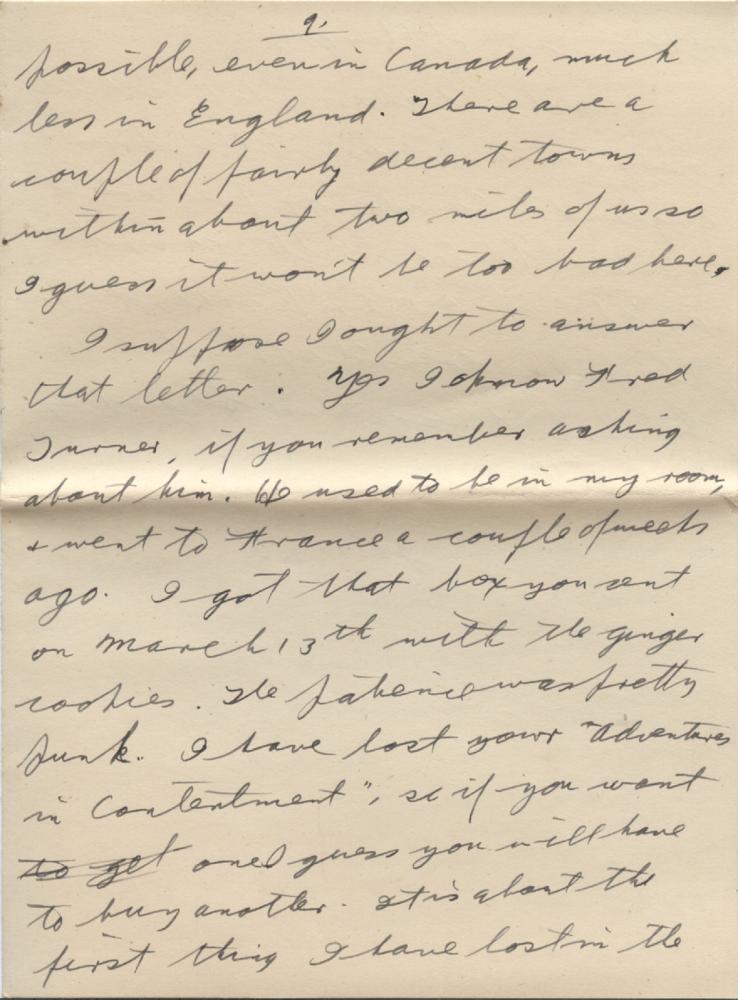 9.
possible, even in Canada, much
less in England. There are a
couple of fairly decent towns
within about two miles of us so
I guess it won't be too bad here.
I suppose I ought to answer
that letter. Yes I know Fred
Turner, if you remember asking
about him. He used to be in my room,
+ went to France a couple of weeks
ago. I got that box you sent
on March 13th with the ginger
cookies. The patience was pretty
punk. I have lost your "Adventures
in Contentment", so if you want
to get one I guess you will have
to buy another. It is about the
first thing I have lost in the